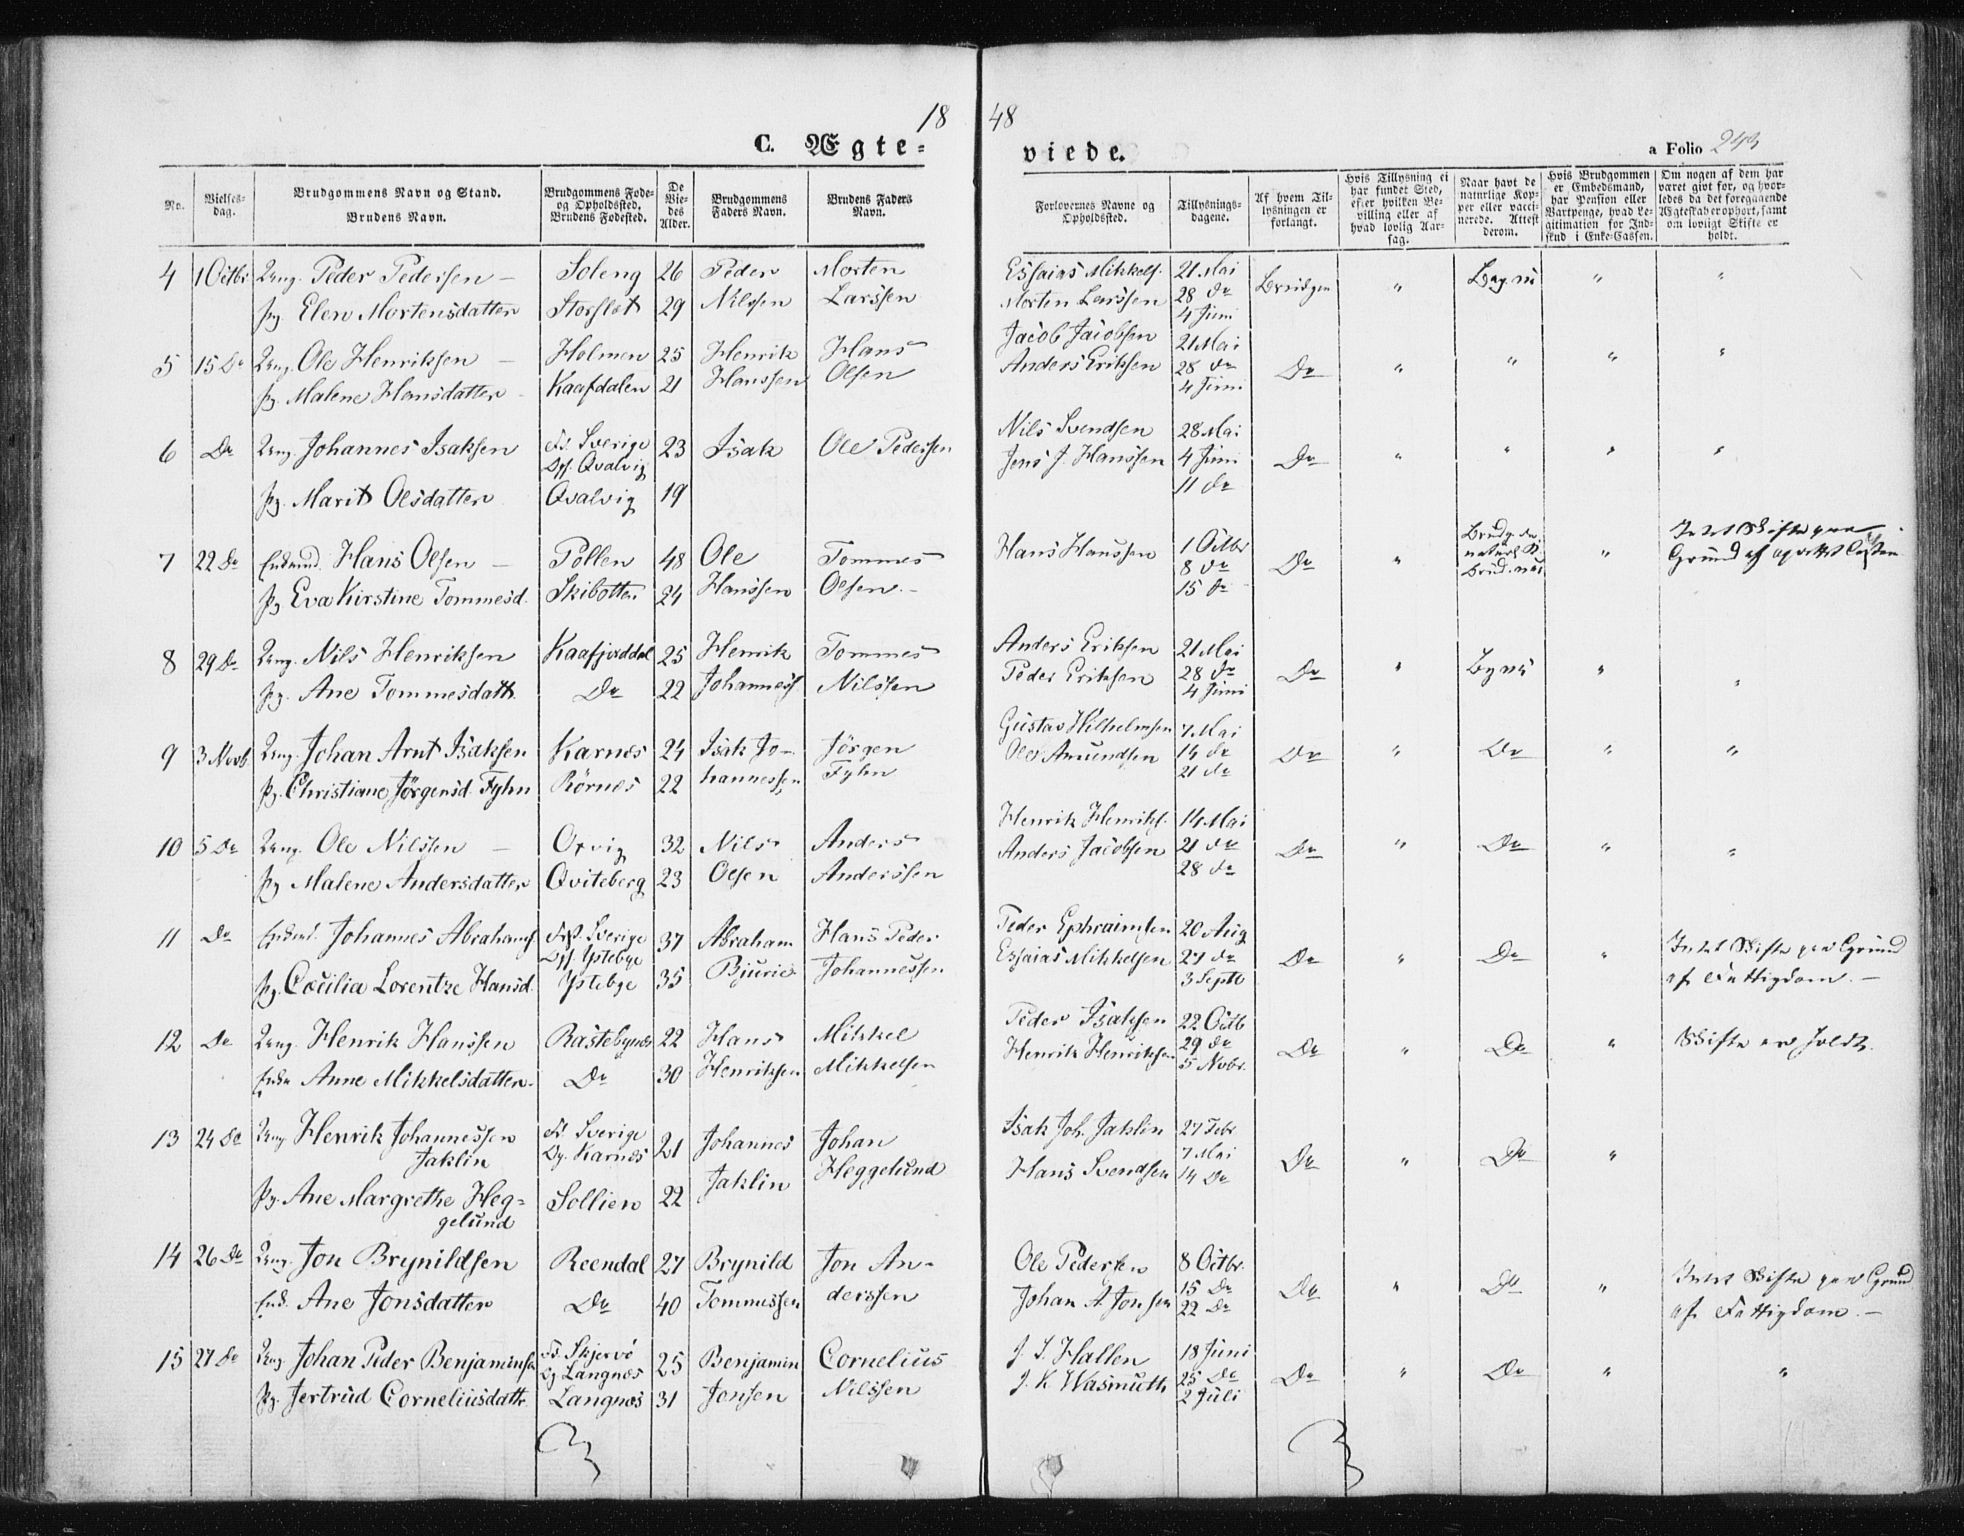 18 48
C. Ægte- viede. a Folio 243
No.
Vielses-
dag.
Brudgommens Navn og Stand.
Brudens Navn.
Brudgommens Føde-
og Opholdssted.
Brudens Fødested.
De
Vie-
des
Alder.
Brudgommens
Faders Navn.
Brudens Faders
Navn.
Forlovernes Navne og
Opholdssted.
Tillysnings-
dagene.
Af hvem Til-
lysningen er
forlangt.
Hvis Tillysning ei
har fundet Sted,
efter hvilken Be-
villing eller af
hvad lovlig Aar-
sag.
Naar havt de
naturlige Kop-
per eller vacci-
nerede. Attest
derom.
Hvis Brudgommen
er Embedsmand,
har Pension eller
Vartpenge, hvad Le-
gitimation for Ind-
skud i Enke-Cassen.
Om nogen af dem har
været gift før, og hvor-
ledes da det foregaaende
Ægteskab er ophørt, samt
om lovligt Skifte er
holdt.
4 1 Octbr. Ung. Peder Pedersen — Soleng 26 Peder Morten Essaias Mikkels. 21 Mai Brudgm " "
Pg. Elen Mortensdatter Storslet 29 Nilssen Larssen Morten Larssen 28 Do "
4 Juni
5 15 Do Ung. Ole Henriksen — Holmen 25 Henrik Hans Jacob Jacobsen 21 Mai
Pg. Malene Hansdatter Kaafdalen 21 Hanssen Olsen Anders Eriksen 28 Do Do " " " "
4 Juni
6 Do Ung. Johannes Isaksen Fs. Sverige 23 Isak Ole Pedersen Nils Svendsen 28 Mai
Ops. Qvalvig Jens J. Hanssen 4 Juni Do " " " "
Pg. Marit Olsdatter Qvalvig 19 11 Do
7 22 Do Enkemd. Hans Olsen — Pollen 48 Ole Tommes Hans Hanssen 1 Octbr Do " Brudg. de "
naturl. K. Intet Skifte paa
Grund af
Pg Eva Kirstine Tommesd. Skibotten 24 Hanssen Olsen 8 Do
15 Do
8 29 Do Ung. Nils Henriksen Kaafjorddal 25 Henrik Tommes Anders Eriksen 21 Mai
Pg. Ane Tommesdatt. Do 22 Johanness Nilssen Peder Eriksen 28 Do Do " " "
4 Juni
9 3 Novb. Ung. Johan Arnt Isaksen Karnes 24 Isak Jo- Jørgen Gustav Wilhelmsen 7 Mai
Pg. Christiane Jørgensd. Fyhn Rørnes 22 hannessen Fyhn Ole Amundsen 14 Do Do " Do " "
21 Do
10 5 Do Ung. Ole Nilssen — Oxvig 32 Nils Anders Henrik Henriks. 14 Mai
Pg Malene Andersdatter Qviteberg 23 Olsen Anderssen Anders Jacobsen 21 Do Do " Do " "
28 Do
11 Do Enkemd. Johannes Abrahams. Fst. Sverige 37 Abraham Hans Peder Peder Ephraimsen 20 Aug
Ops. Ystebye Essaias Mikkelsen 27 Do Do " Do " Intet Skifte paa Grund
Pg. Cecilia Lorentze Hansd. Ystebye 35 Bjurie Johannessen 3 Septb af Fattigdom. —
12 Do Ung. Henrik Hanssen Rastebynæs 22 Hans Mikkel Peder Isaksen 22 Octb
Enke Anne Mikkelsdatter Do 30 Henriksen Mikkelsen Henrik Henriksen 29 Do Do " Do " Skifte er holdt.
5 Nvbr.
13 24 Do Ung Henrik Johannessen Fs. Sverige 21 Johannes Johan Isak Joh. Jaklin 27 Febr
Jaklin Og. Karnes Jaklin Heggelund 7 Mai Do " Do "
Pg. Ane Margrethe Heg- Sollien 22 Hans Svendsen 14 Do
gelund
14 26 Do Ung. Jon Brynildsen Reendal 27 Brynild Jon An- Ole Pedersen 8 Octbr. Intet Skifte paa Grund
Enk. Ane Jonsdatter Do 40 Tommessen derssen Johan A. Jonsen 15 Do Do " Do " af Fattigdom. —
22 Do
15 27 Do Ung Johan Peder Benjaminsen Fs Skjervø 25 Benjamin Cornelius J. S. Hallen 18 Juni
Og Langnes 25 Do Do " Do " "
Pg. Jertrud Corneliusdattr. Langnes 31 Jonsen Nilssen J. K. Wasmuth 2 Juli